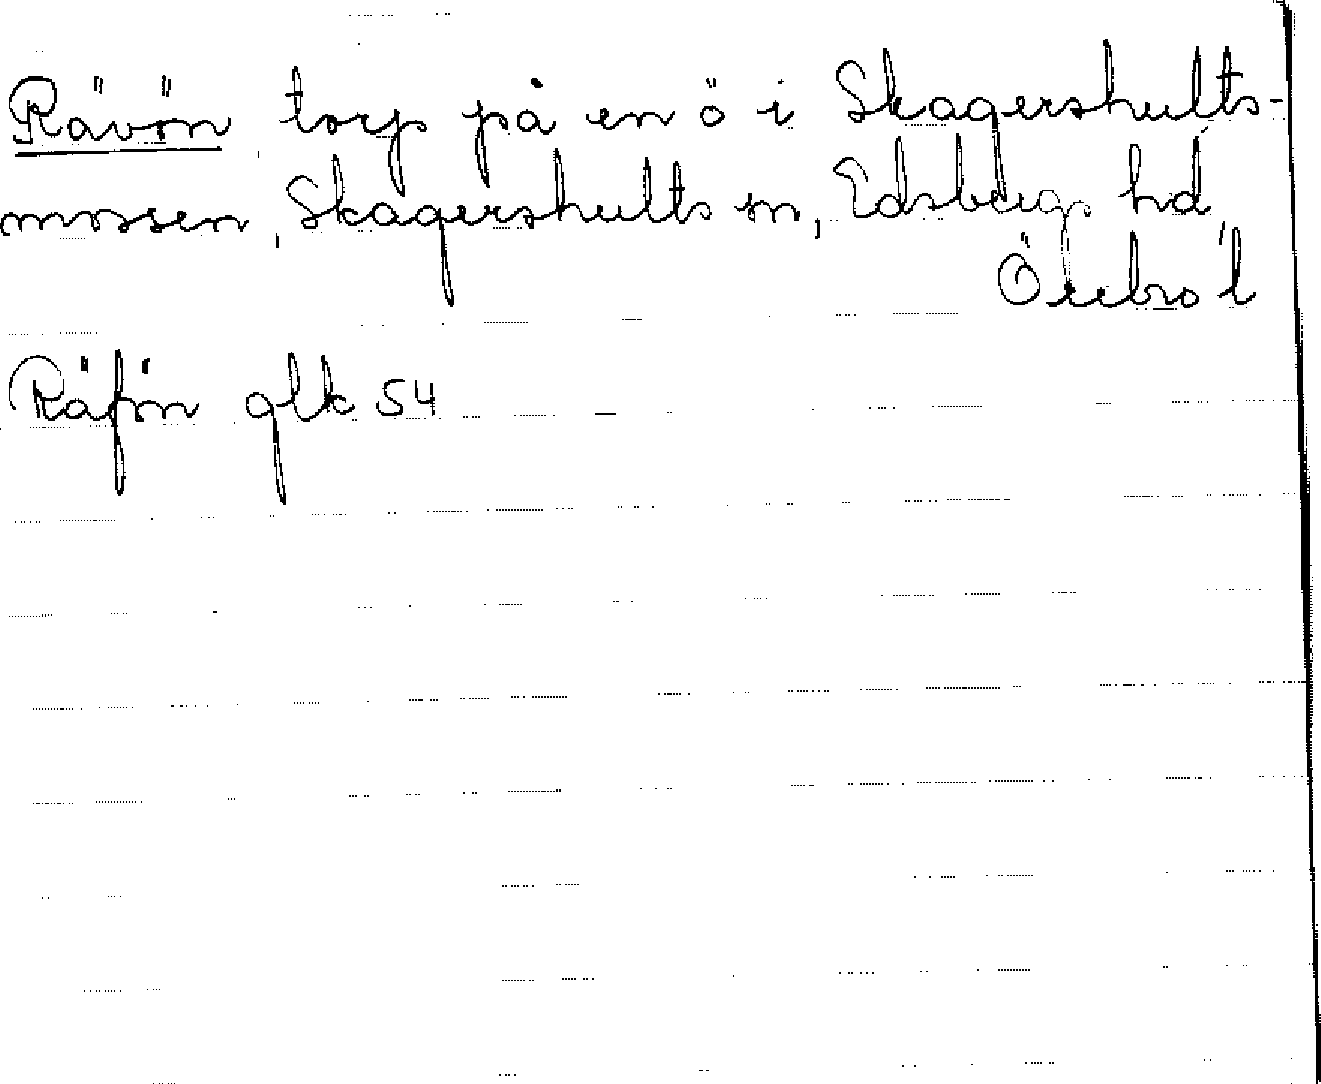 Rävön, torp på en ö i Skagershults-
mossen, Skagershults sn, Edsbergs hd,
Örebro l
Räfön glk 54